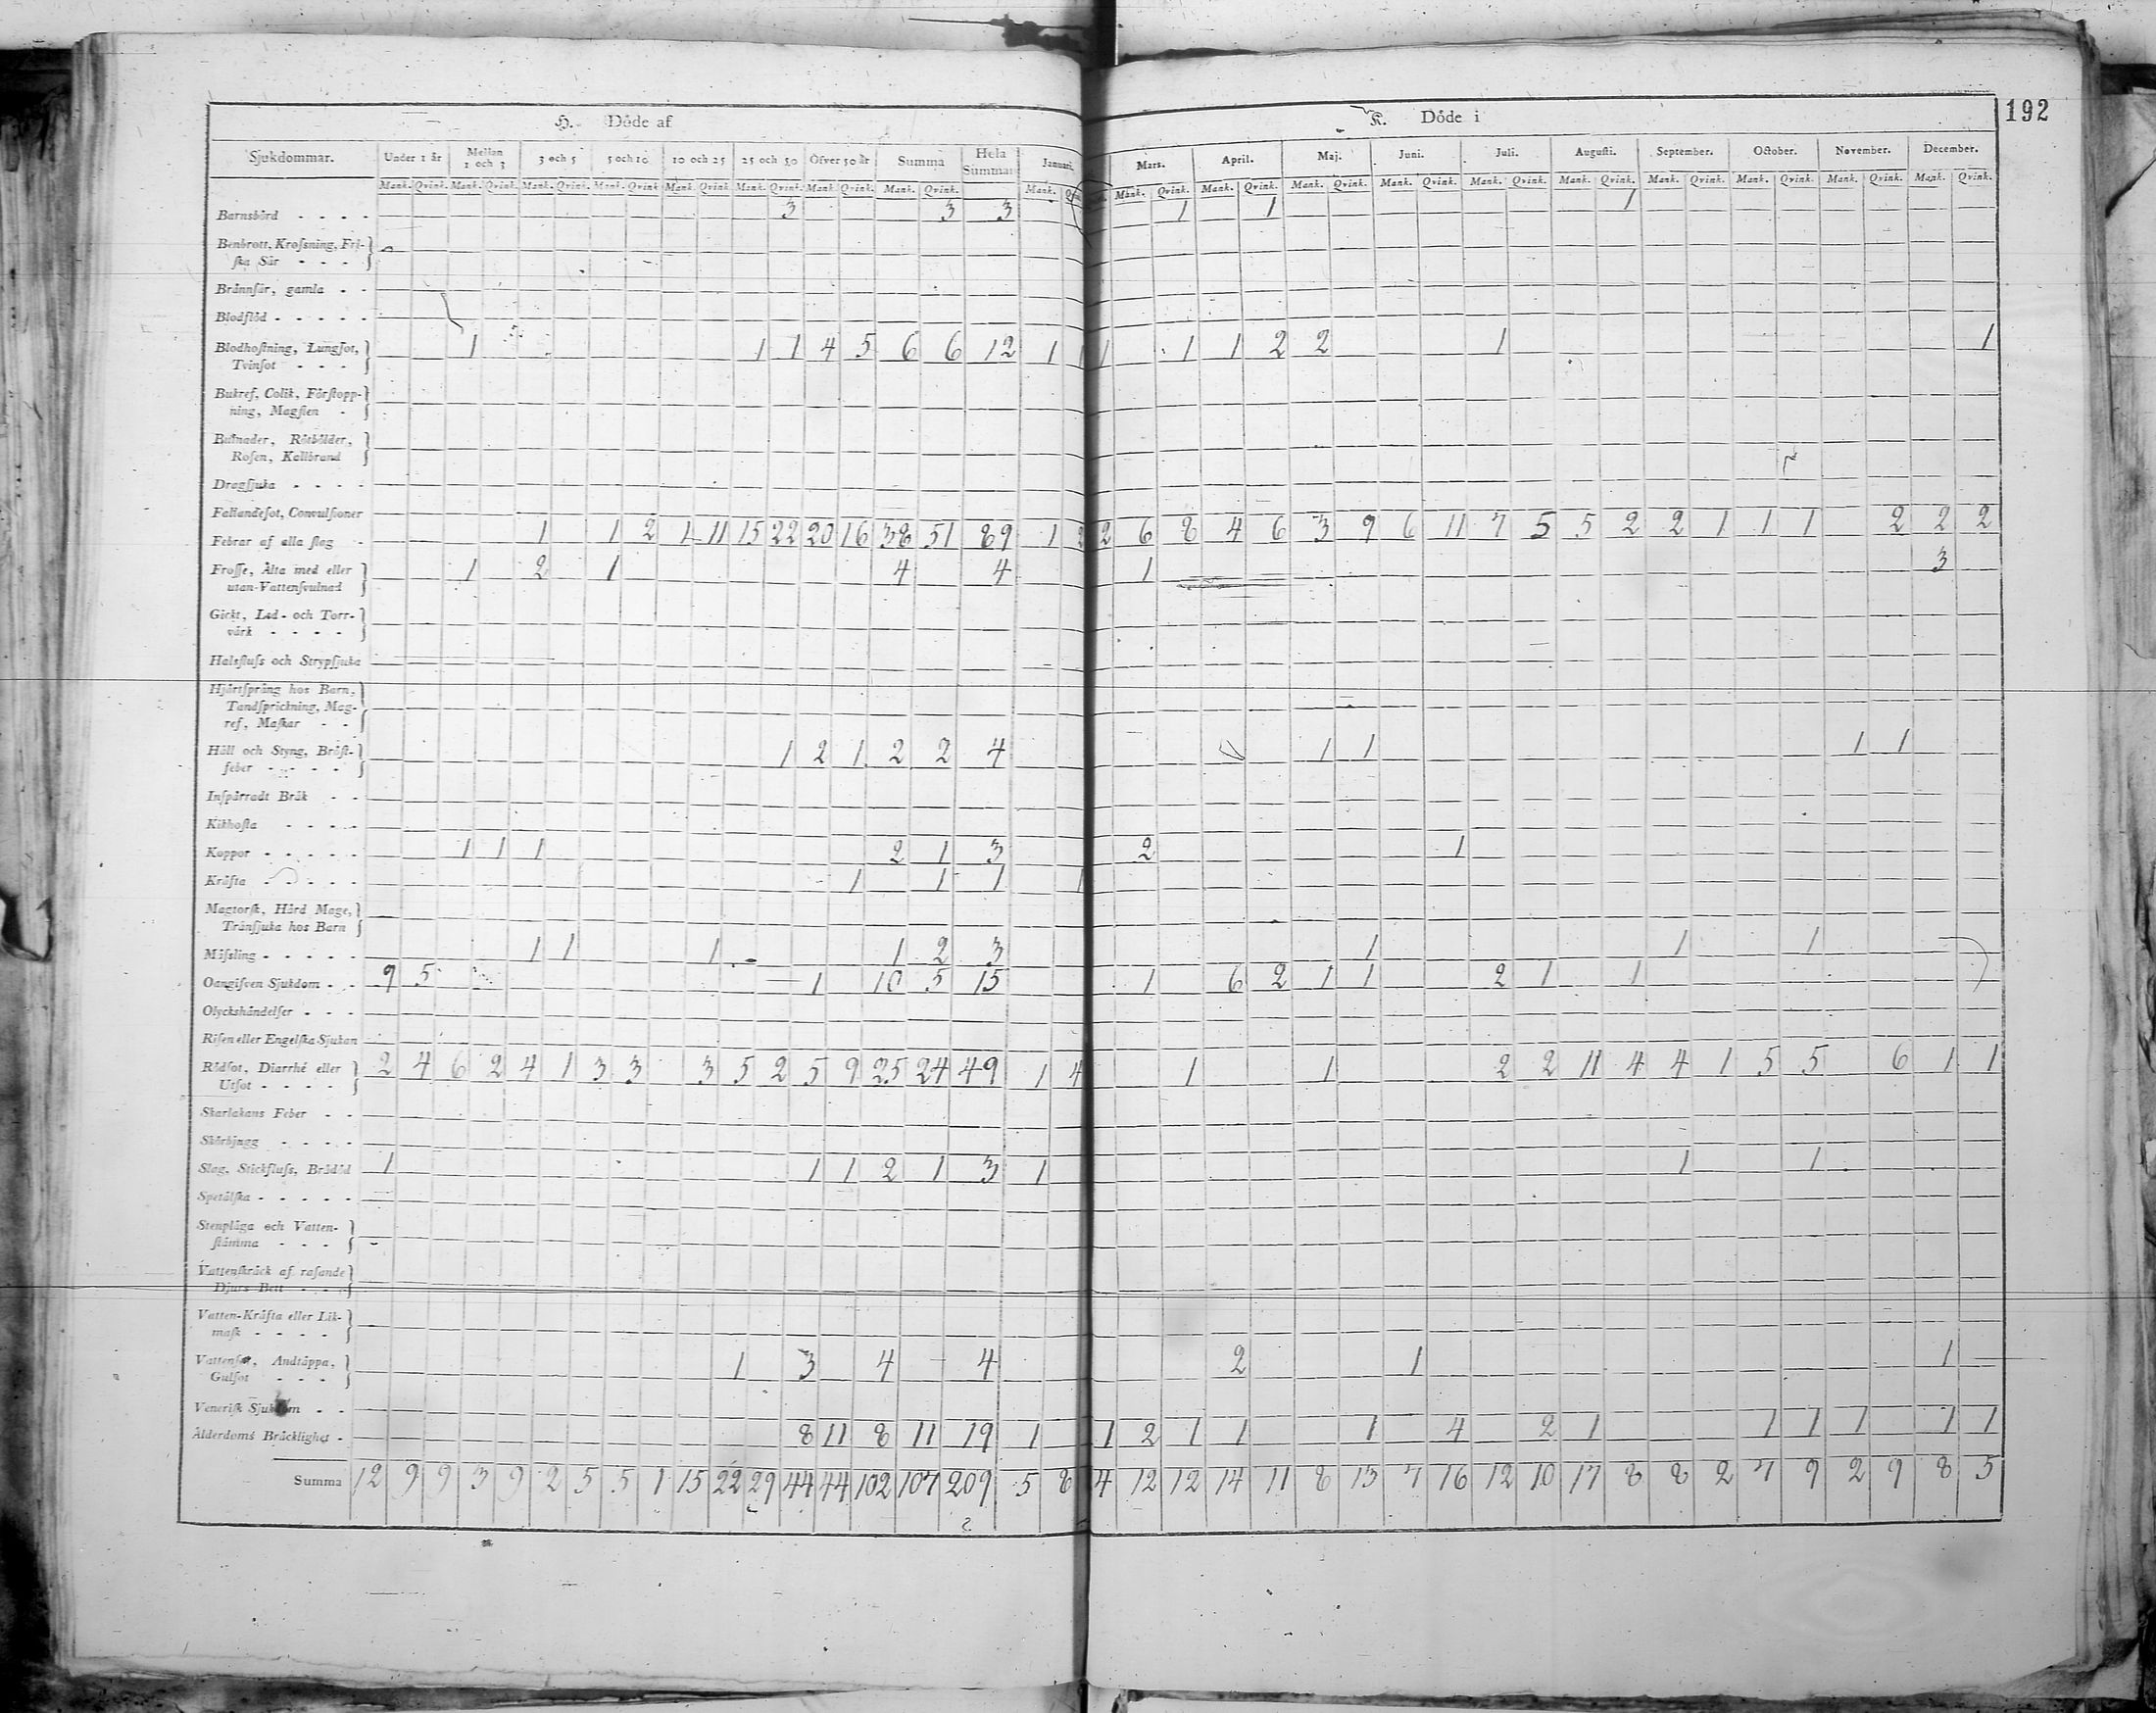 192
H. Döde af
K. Döde i
Sjukdommar. Under 1 år Mellan 1 och 3 3 och 5 5 och 10 10 och 25 25 och 50 Öfver 50 år Summa Hela Summan Januari. Mars. April. Maj. Juni. Juli. Augusti. September. October. November. December.
Mank. Qvink. Mank. Qvink. Mank. Qvink. Mank. Qvink. Mank. Qvink. Mank. Qvink. Mank. Qvink. Mank. Qvink. Mank. Mank. Qvink. Mank. Qvink. Mank. Qvink. Mank. Qvink. Mank. Qvink. Mank. Qvink. Mank. Qvink. Mank. Qvink. Mank. Qvink. Mank. Qvink.
Barnsbörd - - - - 3 3 3 1 1 1
Benbrott, Kroſsning, Fri-
ſka Sår - - -
Brännſår, gamla - -
Blodflöd - - - - -
Blodhoſtning, Lungſot, 1 1 1 4 5 6 6 12 1 1 1 1 1 2 2 1 1
Tvinſot - - -
Bukref, Colik, Förſtopp-
ning, Magſten -
Bulnader, Rötbölder,
Roſen, Kallbrand
Dragſjuka - - - -
Fallandeſot, Convulſioner
Febrar af alla ſlag - 1 1 2 1 11 15 22 20 16 38 51 89 1 2 2 6 8 4 6 3 9 6 11 7 5 5 2 2 1 1 1 2 2 2
Froſſe, Älta med eller 1 2 1 4 4 1 3
utan Vattenſvulnad
Gickt, Led- och Torr-
värk - - - -
Halsfluſs och Strypſjuka
Hjärtſpräng hos Barn,
Tandſprickning, Mag-
ref, Maſkar - -
Håll och Styng, Bröſt- 1 2 1 2 2 4 1 1 1 1
feber - - - - -
Inſpärradt Bråk - -
Kikhoſta - - - -
Koppor - - - - - 1 1 1 2 1 3 2 1
Kräfta - - - - - 1 1 1 1
Magtorſk, Hård Mage,
Tränſjuka hos Barn
Mäſsling - - - - - 1 1 1 1 2 3 1 1 1
Oangifven Sjukdom - - 9 5 1 10 5 15 1 6 2 1 1 2 1 1
Olyckshändelſer - - -
Riſen eller Engelſka Sjukan
Rödſot, Diarrhé eller 2 4 6 2 4 1 3 3 3 5 2 5 9 25 24 49 1 4 1 1 2 2 11 4 4 1 5 5 6 1 1
Utſot - - - -
Skarlakans Feber - -
Skörbjugg - - - -
Slag, Stickfluſs, Brådöd 1 1 1 2 1 3 1 1 1
Spetälſka - - - - -
Stenplåga och Vatten-
ſtämma - - - -
Vattenſkräck af raſande
Djurs Bett - - -
Vatten-Kräfta eller Lik-
maſk - - - -
Vattenſot, Andtäppa, 1 3 4 4 2 1 1
Gulſot - - -
Veneriſk Sjukdom - -
Ålderdoms Bräcklighet - 8 11 8 11 19 1 1 2 1 1 1 4 2 1 1 1 1 1 1
Summa 12 9 9 3 9 2 5 5 1 15 22 29 44 44 102 107 209 5 8 4 12 12 14 11 8 13 7 16 12 10 17 8 8 2 7 9 2 9 8 5